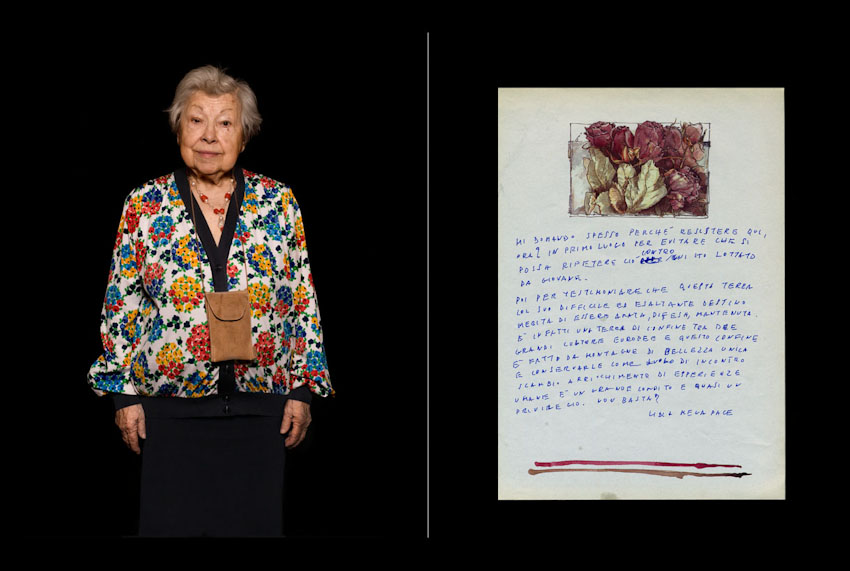 MI DOMANDO SPESSO PERCHÈ RESISTERE QUI,
ORA? IN PRIMO LUOGO PER EVITARE CHE SI
POSSA RIPETERE CIÒ CONTRO CUI HO LOTTATO
DA GIOVANE.
POI PER TESTIMONIARE CHE QUESTA TERRA
COL SUO DIFFICILE ED ESALTANTE DESTINO
MERITA DI ESSERE AMATA, DIFESA, MANTENUTA.
E' INFATTI UNA TERRA DI CONFINE TRA DUE
GRANDI CULTURE EUROPEE E QUESTO CONFINE
È FATTO DA MONTAGNE DI BELLEZZA UNICA
E CONSERVARLE COME LUOGO DI INCONTRO
SCAMBIO ARRICCHIMENTO DI ESPERIENZE
UMANE E' UN GRANDE COMPITO E QUASI UN
PRIVILEGIO. NON BASTA?
LIDIA MENAPACE